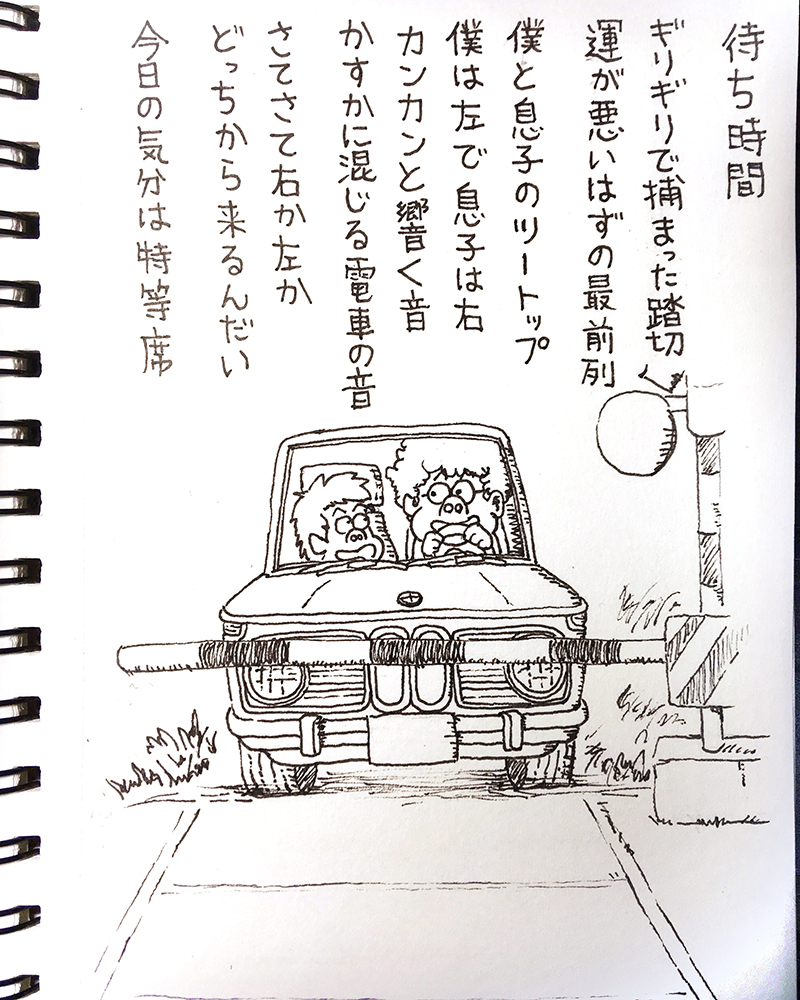 待ち時間
ギリギリで捕まった踏切
運が悪いはずの最前列
僕と息子のツートップ
僕は左で息子は右
カンカンと響く音
かすかに混じる電車の音
さてさて右か左か
どっちから来るんだい
今日の気分は特等席